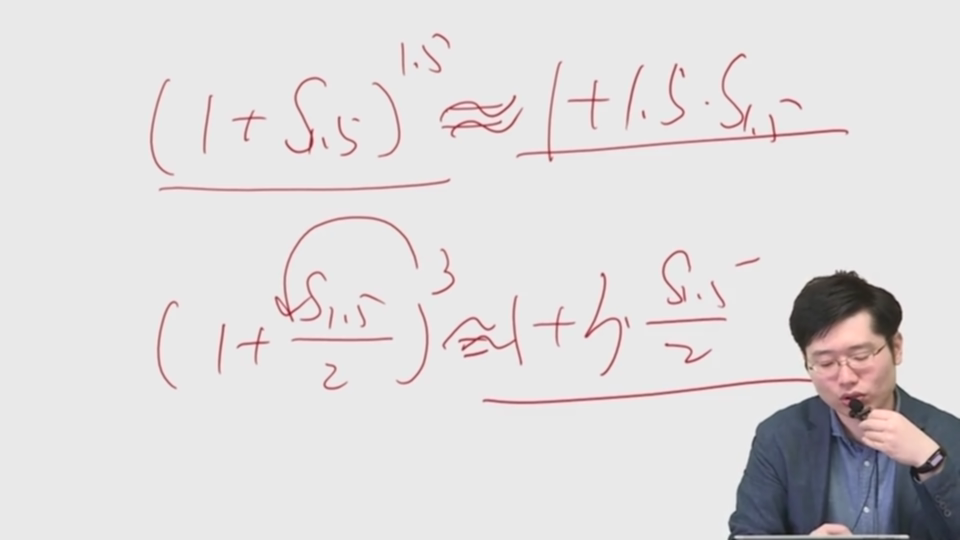 (1 + S₁.₅)^1.5 ≈ 1 + 1.5 · S₁.₅
(1 + S₁.₅/2)^3 ≈ 1 + 3 · S₁.₅/2